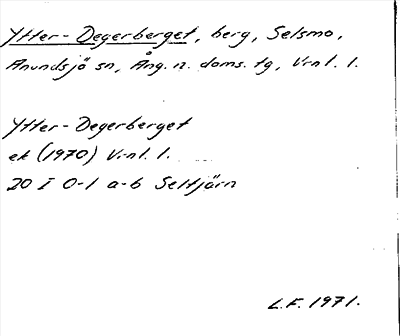 Ytter-Degerberget, berg, Selsmo,
Anundsjö sn, Ång. n. doms. tg, V.nl. l.
Ytter-Degerberget
ek (1970) V.nl. l.
20 I 0-1 a-b Seltjärn
L.F. 1971.